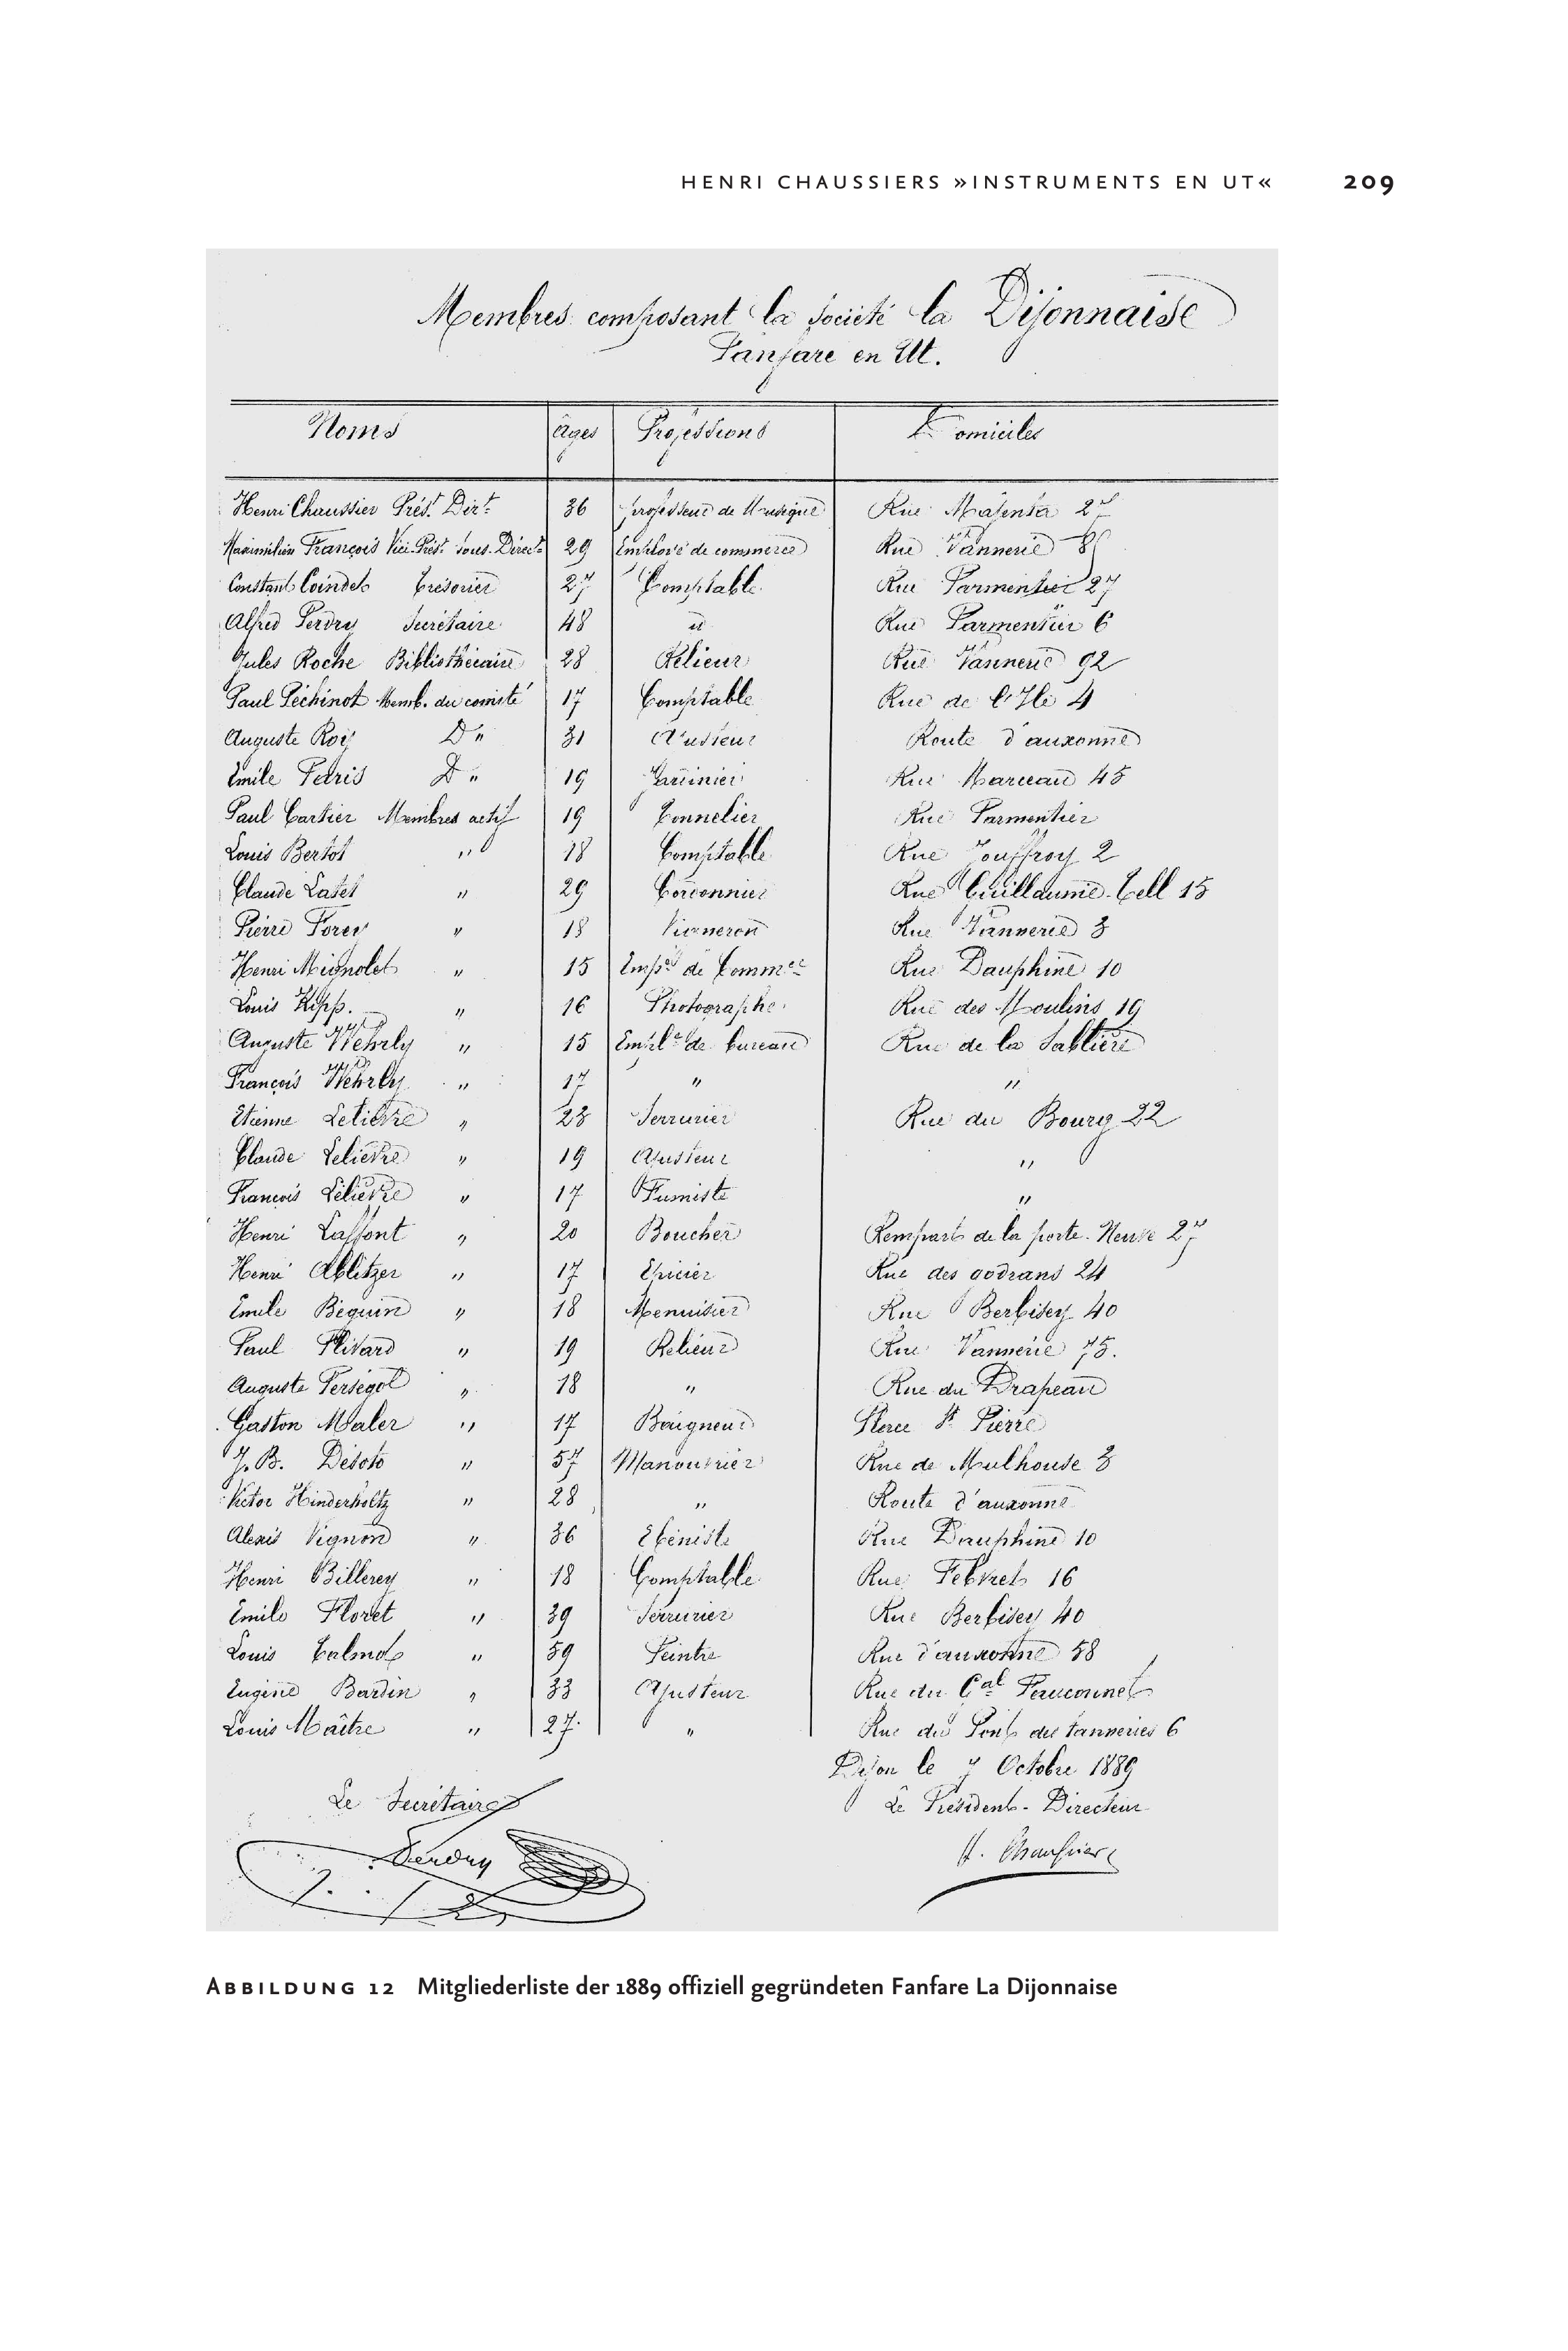 HENRI CHAUSSIERS »INSTRUMENTS EN UT« 209
Membres composant la Société la Dijonnaise
Fanfare en Ut.
Noms âges Professions Domiciles
Henri Chaussier Prést. Dirt. 36 professeur de Musique Rue Majenta 27
Maximilien François Vice-Prést. Sous-Direct. 29 Employé de commerce Rue Vannerie
Constant Coindet Trésorier 27 Comptable Rue Parmentier 27
Alfred Perdry Secrétaire 48 " Rue Parmentier 6
Jules Roche Bibliothécaire 28 Relieur Rue Vannerie 92
Paul Péchinot Memb. du comité 17 Comptable Rue de l'Ile 4
Auguste Roy D° 31 Ajusteur Route d'auxonne
Emile Paris D° 19 Rue Marceau 45
Paul Cartier Membres actif 19 Tonnelier Rue Parmentier
Louis Bertot " 18 Comptable Rue Jouffroy 2
Claude Latet " 29 Cordonnier Rue Guillaume-Tell 15
Pierre Forey " 18 Vigneron Rue Vannerie 3
Henri Mignolet " 15 Empé de Commce Rue Dauphine 10
Louis Kipp. " 16 Photographe Rue des Moulins 19
Auguste Wehrly " 15 Emplé de bureau Rue de la Sablière
François Wehrly " 17 " "
Etienne Lelièvre " 23 Serrurier Rue du Bourg 22
Claude Lelièvre " 19 Ajusteur "
François Lelièvre " 17 Fumiste "
Henri Laffont " 20 Boucher Remparts de la porte-Neuve 27
Henri Ablitzer " 17 Epicier Rue des godrans 24
Emile Béguin " 18 Menuisier Rue Berbisey 40
Paul Flivard " 19 Relieur Rue Vannerie 75.
Auguste Perségol " 18 " Rue du Drapeau
Gaston Maler " 17 Baigneur Place St Pierre
J. B. Désoto " 57 Manouvrier Rue de Mulhouse 3
Victor Hinderholtz " 28 " Route d'auxonne
Alexis Vignon " 36 Ebéniste Rue Dauphine 10
Henri Billerey " 18 Comptable Rue Febvret 16
Emile Floret " 39 Serrurier Rue Berbisey 40
Louis Calmot " 59 Peintre Rue d'auxonne 58
Eugène Bardin " 33 Ajusteur Rue du Gal Fauconnet
Louis Maître " 27 " Rue du Pont des tanneries 6
Dijon le 7 Octobre 1889
Le Secrétaire Le Président-Directeur
Perdry H. Chaussier
ABBILDUNG 12 Mitgliederliste der 1889 offiziell gegründeten Fanfare La Dijonnaise